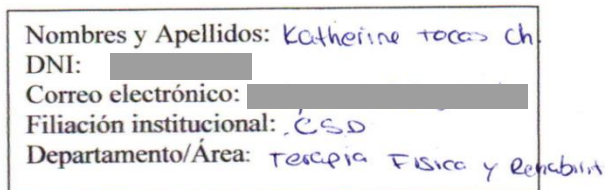 Nombres y Apellidos: Katherine Tocas Ch.
DNI:
Correo electrónico:
Filiación institucional: CSD
Departamento/Área: Terapia Fisica y Rehabilit